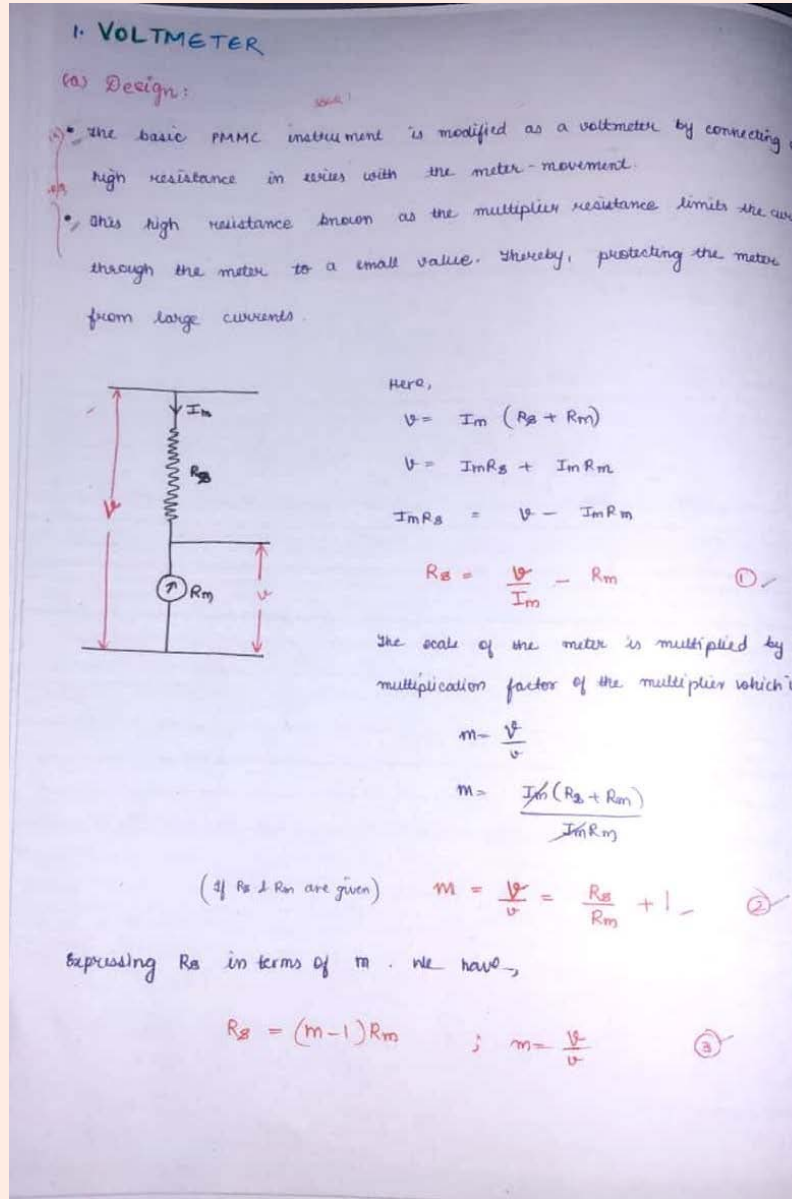 1. VOLTMETER
(a) Design:
• The basic PMMC instrument is modified as a voltmeter by connecting
high resistance in series with the meter-movement.
• This high resistance known as the multiplier resistance limits the
through the meter to a small value. Thereby, protecting the meter
from large currents.
Here,
V = Im (Rs + Rm)
V = ImRs + ImRm
ImRs = V - ImRm
Rs = V/Im - Rm ①
Im
Rs
V
Rm
v
The scale of the meter is multiplied by
multiplication factor of the multiplier which
m = V/v
m = Im(Rs + Rm)/ImRm
(If Rs & Rm are given) m = V/v = Rs/Rm + 1 ②
Expressing Rs in terms of m. We have,
Rs = (m-1)Rm ; m = V/v ③